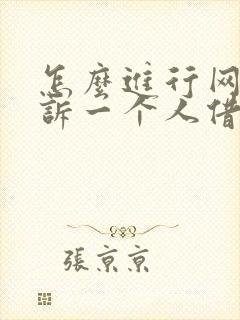 怎麼進行网
訴一个人借
張京京